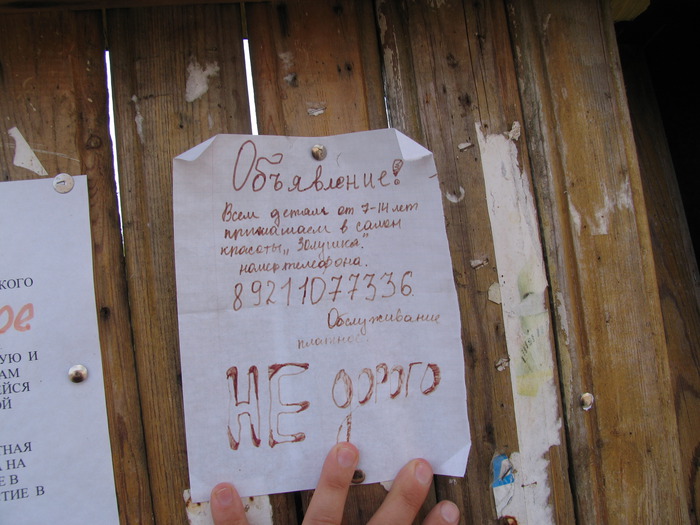 Объявление!
Всем детям от 7-14 лет
приглашаем в салон
красоты „Золушка."
номер телефона.
89211077336
Обслуживание
платное
НЕ ДОРОГО
КОГО
ое
УЮ И
АМ
ЕЙСЯ
ОЙ
ТНАЯ
А НА
Е В
ТИЕ В